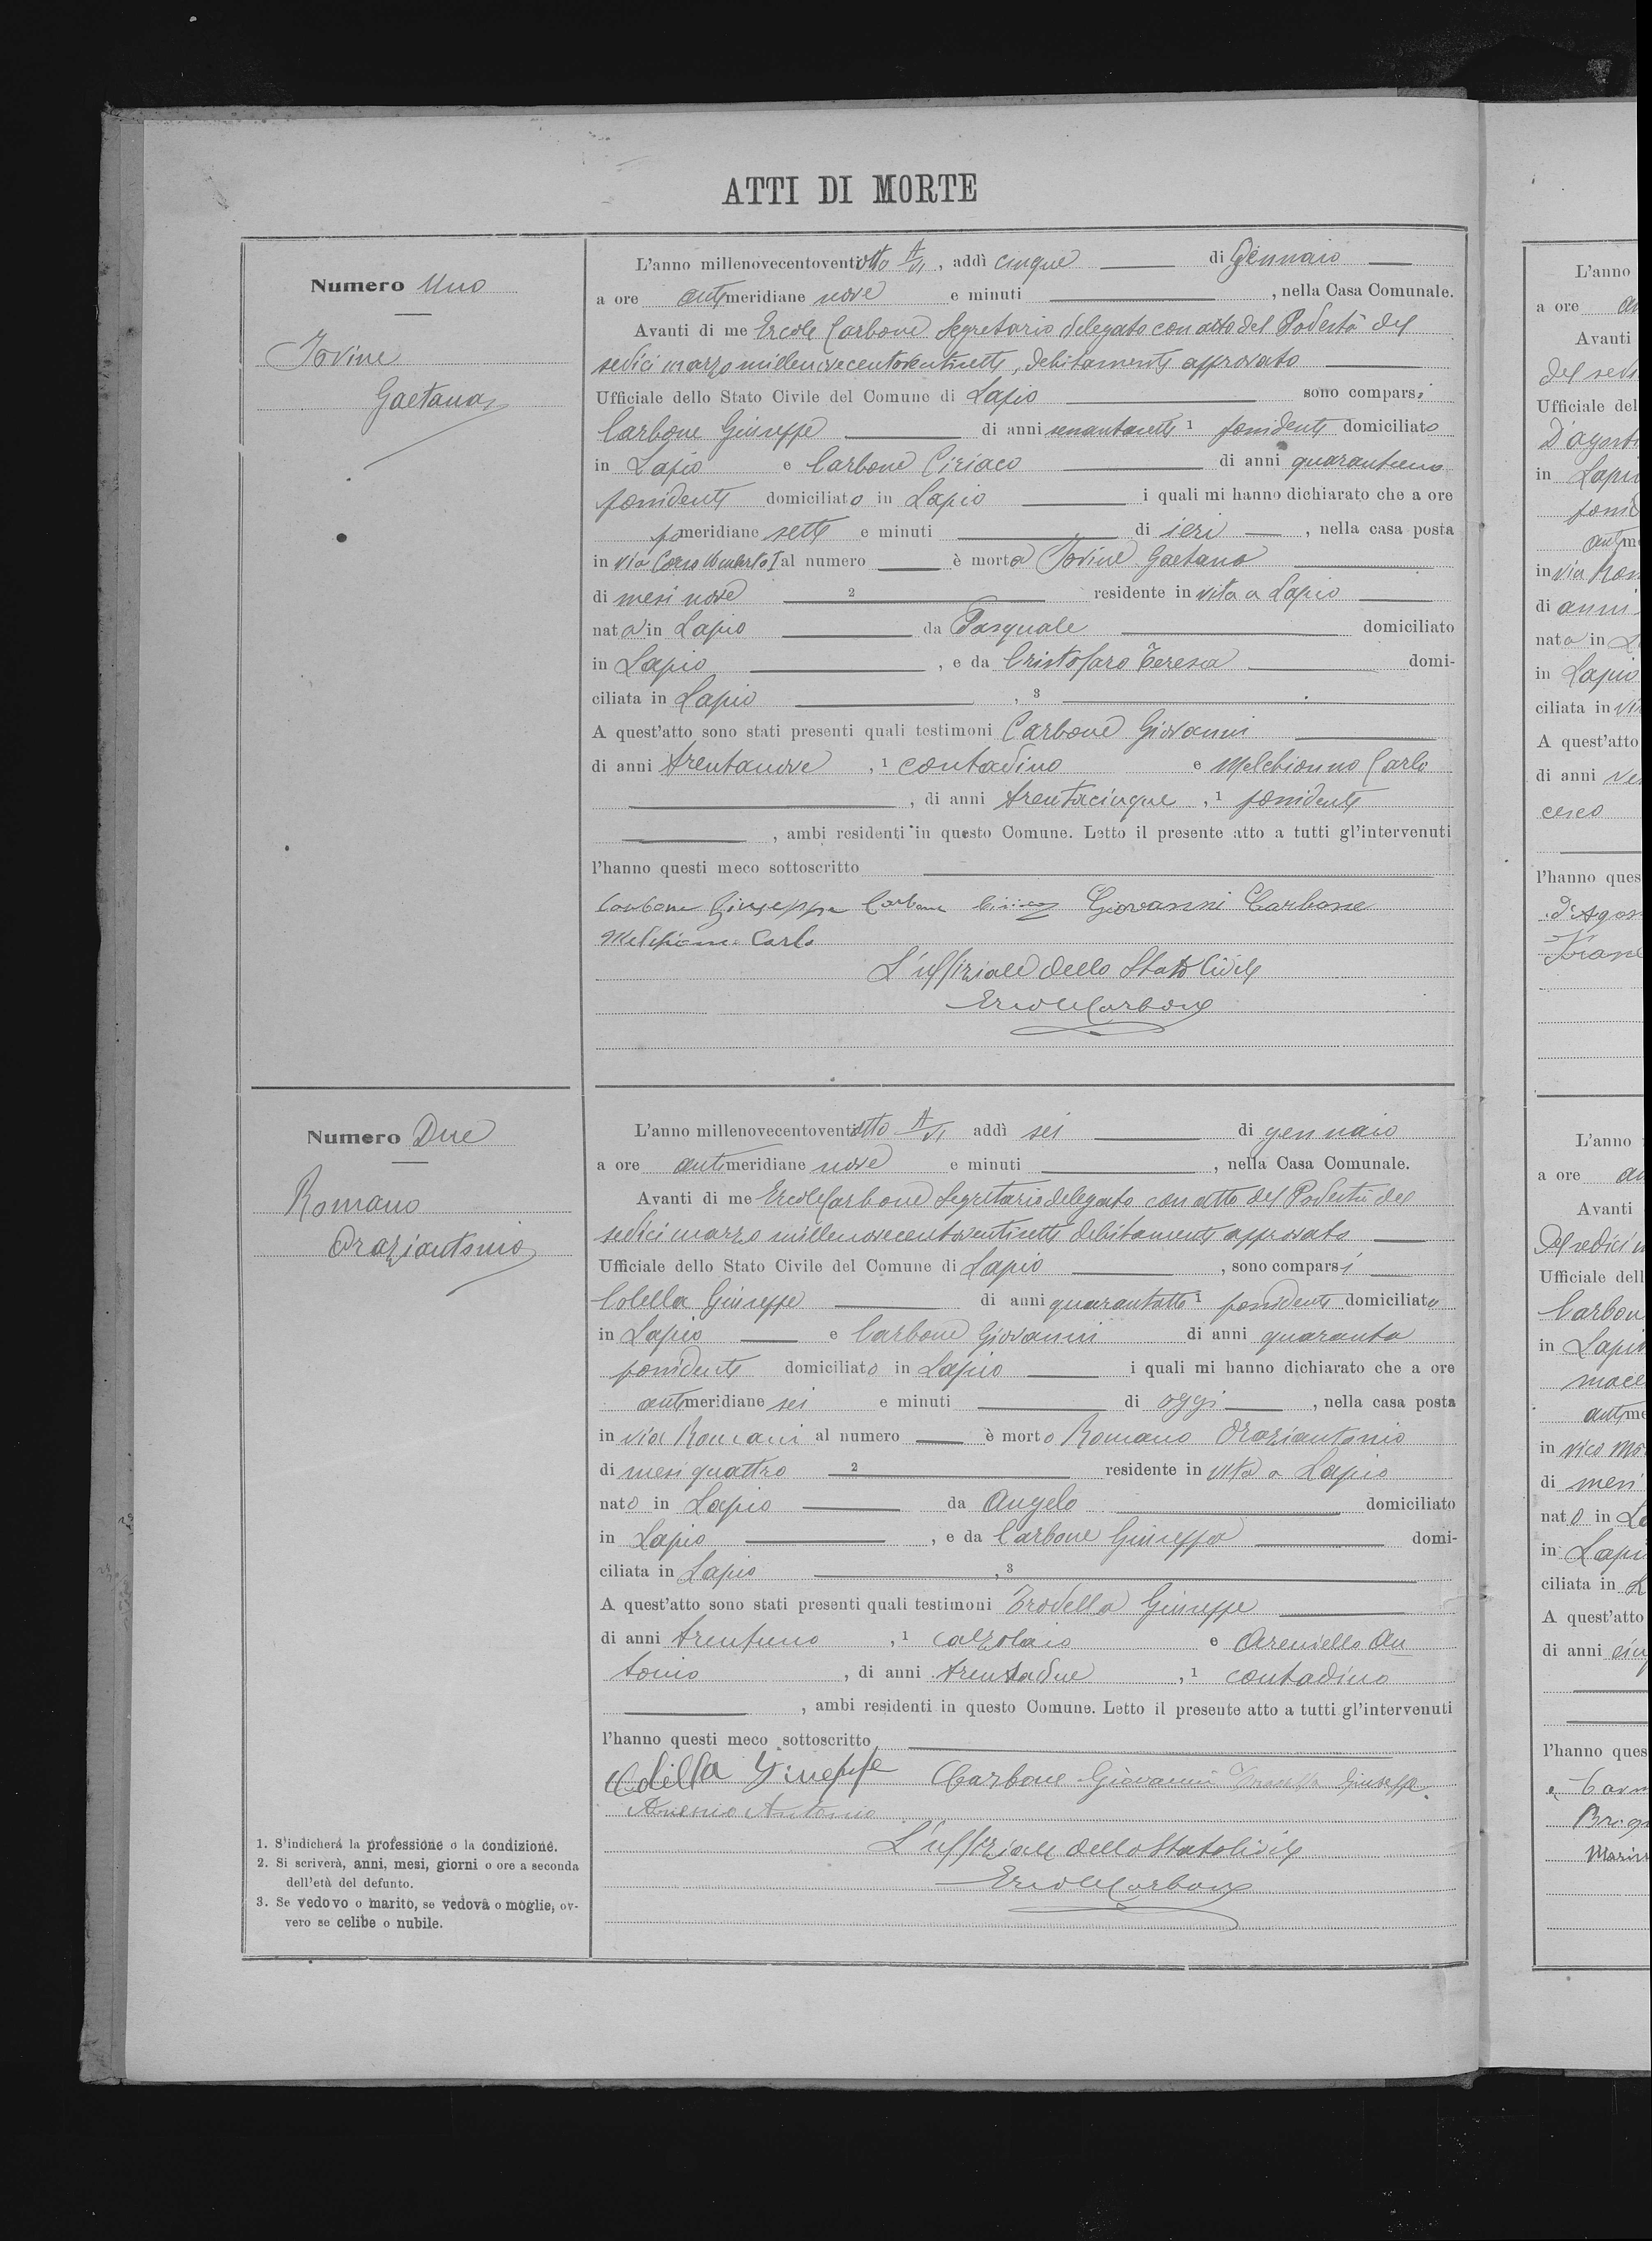 ATTI DI MORTE
Numero Uno
Iovine
Gaetana
L'anno millenovecentoventiotto A/VI, addì cinque di Gennaio
a ore antimeridiane nove e minuti , nella Casa Comunale.
Avanti di me Ercole Carbone Segretario delegato con atto del Podestà del
sedici marzo millenovecentoventisette, debitamente approvato
Ufficiale dello Stato Civile del Comune di Lapio sono comparsi
Carbone Giuseppe di anni 1 possidente domiciliato
in Lapio e Carbone Ciriaco di anni quarantuno
possidente domiciliato in Lapio i quali mi hanno dichiarato che a ore
pomeridiane sette e minuti di ieri , nella casa posta
in via Corso Umberto I al numero è morta Iovine Gaetana
di mesi nove 2 residente in vita a Lapio
nata in Lapio da Pasquale domiciliato
in Lapio , e da Cristofaro Teresa domi-
ciliata in Lapio , 3
A quest'atto sono stati presenti quali testimoni Carbone Giovanni
di anni trentanove , 1 contadino e Melchionno Carlo
, di anni trentacinque , 1 possidente
, ambi residenti in questo Comune. Letto il presente atto a tutti gl'intervenuti
l'hanno questi meco sottoscritto
Carbone Giuseppe Carbone Ciriaco Giovanni Carbone
Carlo
L'uffiziale dello Stato Civile
Ercole Carbone
Numero Due
Romano
Oraziantonio
L'anno millenovecentoventiotto A/VI addì sei di gennaio
a ore antimeridiane nove e minuti , nella Casa Comunale.
Avanti di me Ercole Carbone Segretario delegato con atto del Podestà del
sedici marzo millenovecentoventisette debitamente approvato
Ufficiale dello Stato Civile del Comune di Lapio , sono comparsi
Colella Giuseppe di anni quarantotto 1 possidente domiciliato
in Lapio e Carbone Giovanni di anni quaranta
possidente domiciliato in Lapio i quali mi hanno dichiarato che a ore
antimeridiane sei e minuti di oggi , nella casa posta
in via Romani al numero è morto Romano Oraziantonio
di mesi quattro 2 residente in vita a Lapio
nato in Lapio da Angelo domiciliato
in Lapio , e da Carbone Giuseppa domi-
ciliata in Lapio , 3
A quest'atto sono stati presenti quali testimoni Trodella Giuseppe
di anni trentuno , 1 calzolaio e Areniello An
tonio , di anni trentadue , 1 contadino
, ambi residenti in questo Comune. Letto il presente atto a tutti gl'intervenuti
l'hanno questi meco sottoscritto
Colella Giuseppe Carbone Giovanni Giuseppe
Antonio
L'uffiziale dello Stato Civile
Ercole Carbone
1. S'indicherà la professione o la condizione.
2. Si scriverà, anni, mesi, giorni o ore a seconda
dell'età del defunto.
3. Se vedovo o marito, se vedova o moglie, ov-
vero se celibe o nubile.
L'anno
a ore
Avanti
Ufficiale del
in Lapio
in via
di anni
nata in
in Lapio
ciliata in
A quest'atto
di anni
l'hanno ques
L'anno
a ore
Avanti
Ufficiale dell
in Lapio
in vico
di mesi
nato in
in Lapi
ciliata in
A quest'atto
di anni
l'hanno ques